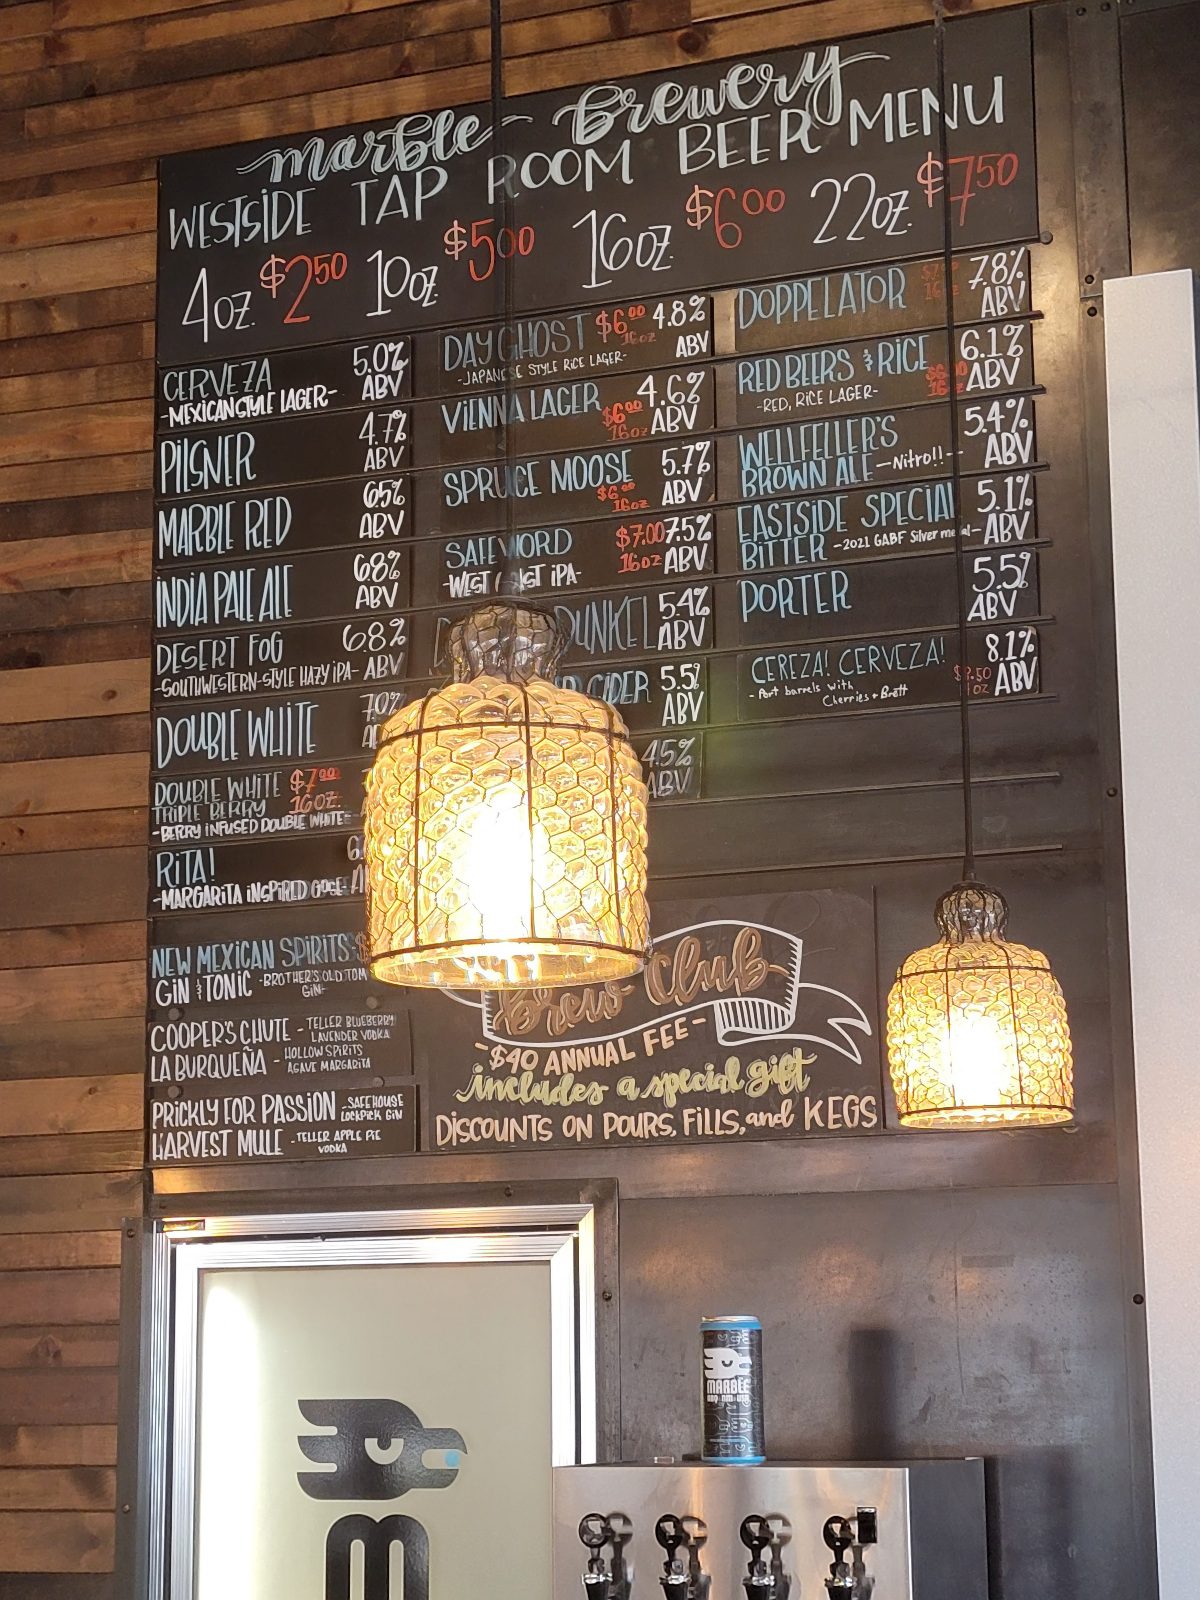 marble brewery
WESTSIDE TAP ROOM BEER MENU
4oz. $2.50 10oz. $5.00 16oz. $6.00 22oz. $7.50
CERVEZA 5.0% ABV
-MEXICAN STYLE LAGER-
PILSNER 4.7% ABV
MARBLE RED 6.5% ABV
INDIA PALE ALE 6.8% ABV
DESERT FOG 6.8%
-SOUTHWESTERN-STYLE HAZY IPA- ABV
DOUBLE WHITE 7.0%
DOUBLE WHITE $7.00
TRIPLE BERRY 16oz.
-BERRY INFUSED DOUBLE WHITE-
RITA!
-MARGARITA INSPIRED GOSE-
NEW MEXICAN SPIRITS:
GIN & TONIC -BROTHER'S OLD TOM
GIN-
COOPER'S CHUTE - TELLER BLUEBERRY
LAVENDER VODKA
LA BURQUEÑA - HOLLOW SPIRITS
AGAVE MARGARITA
PRICKLY FOR PASSION - SAFEHOUSE
LOCKPICK GIN
HARVEST MULE - TELLER APPLE PIE
VODKA
DAY GHOST $6.00 16oz 4.8% ABV
-JAPANESE STYLE RICE LAGER-
VIENNA LAGER 4.6%
$6.00 16oz ABV
SPRUCE MOOSE 5.7%
$6.00 16oz ABV
SAFEWORD $7.00 7.5%
-WEST COAST IPA- 16oz ABV
DUNKEL 5.4% ABV
CIDER 5.5% ABV
4.5% ABV
DOPPELATOR 7.8% ABV
RED BEERS & RICE 6.1%
-RED, RICE LAGER- 16oz ABV
WELLFELLER'S 5.4%
BROWN ALE -Nitro!!- ABV
EASTSIDE SPECIAL 5.1%
BITTER -2021 GABF Silver medal- ABV
PORTER 5.5% ABV
CEREZA! CERVEZA! 8.1%
- Port barrels with ABV
Cherries + Brett
Brew Club
-$40 ANNUAL FEE-
includes a special gift
DISCOUNTS ON POURS, FILLS, and KEGS
MARBLE
ABQ NM USA